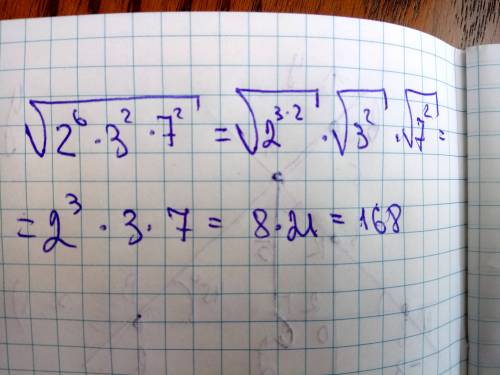 √(2⁶ · 3² · 7²) = √(2³·²) · √(3²) · √(7²) =
= 2³ · 3 · 7 = 8 · 21 = 168